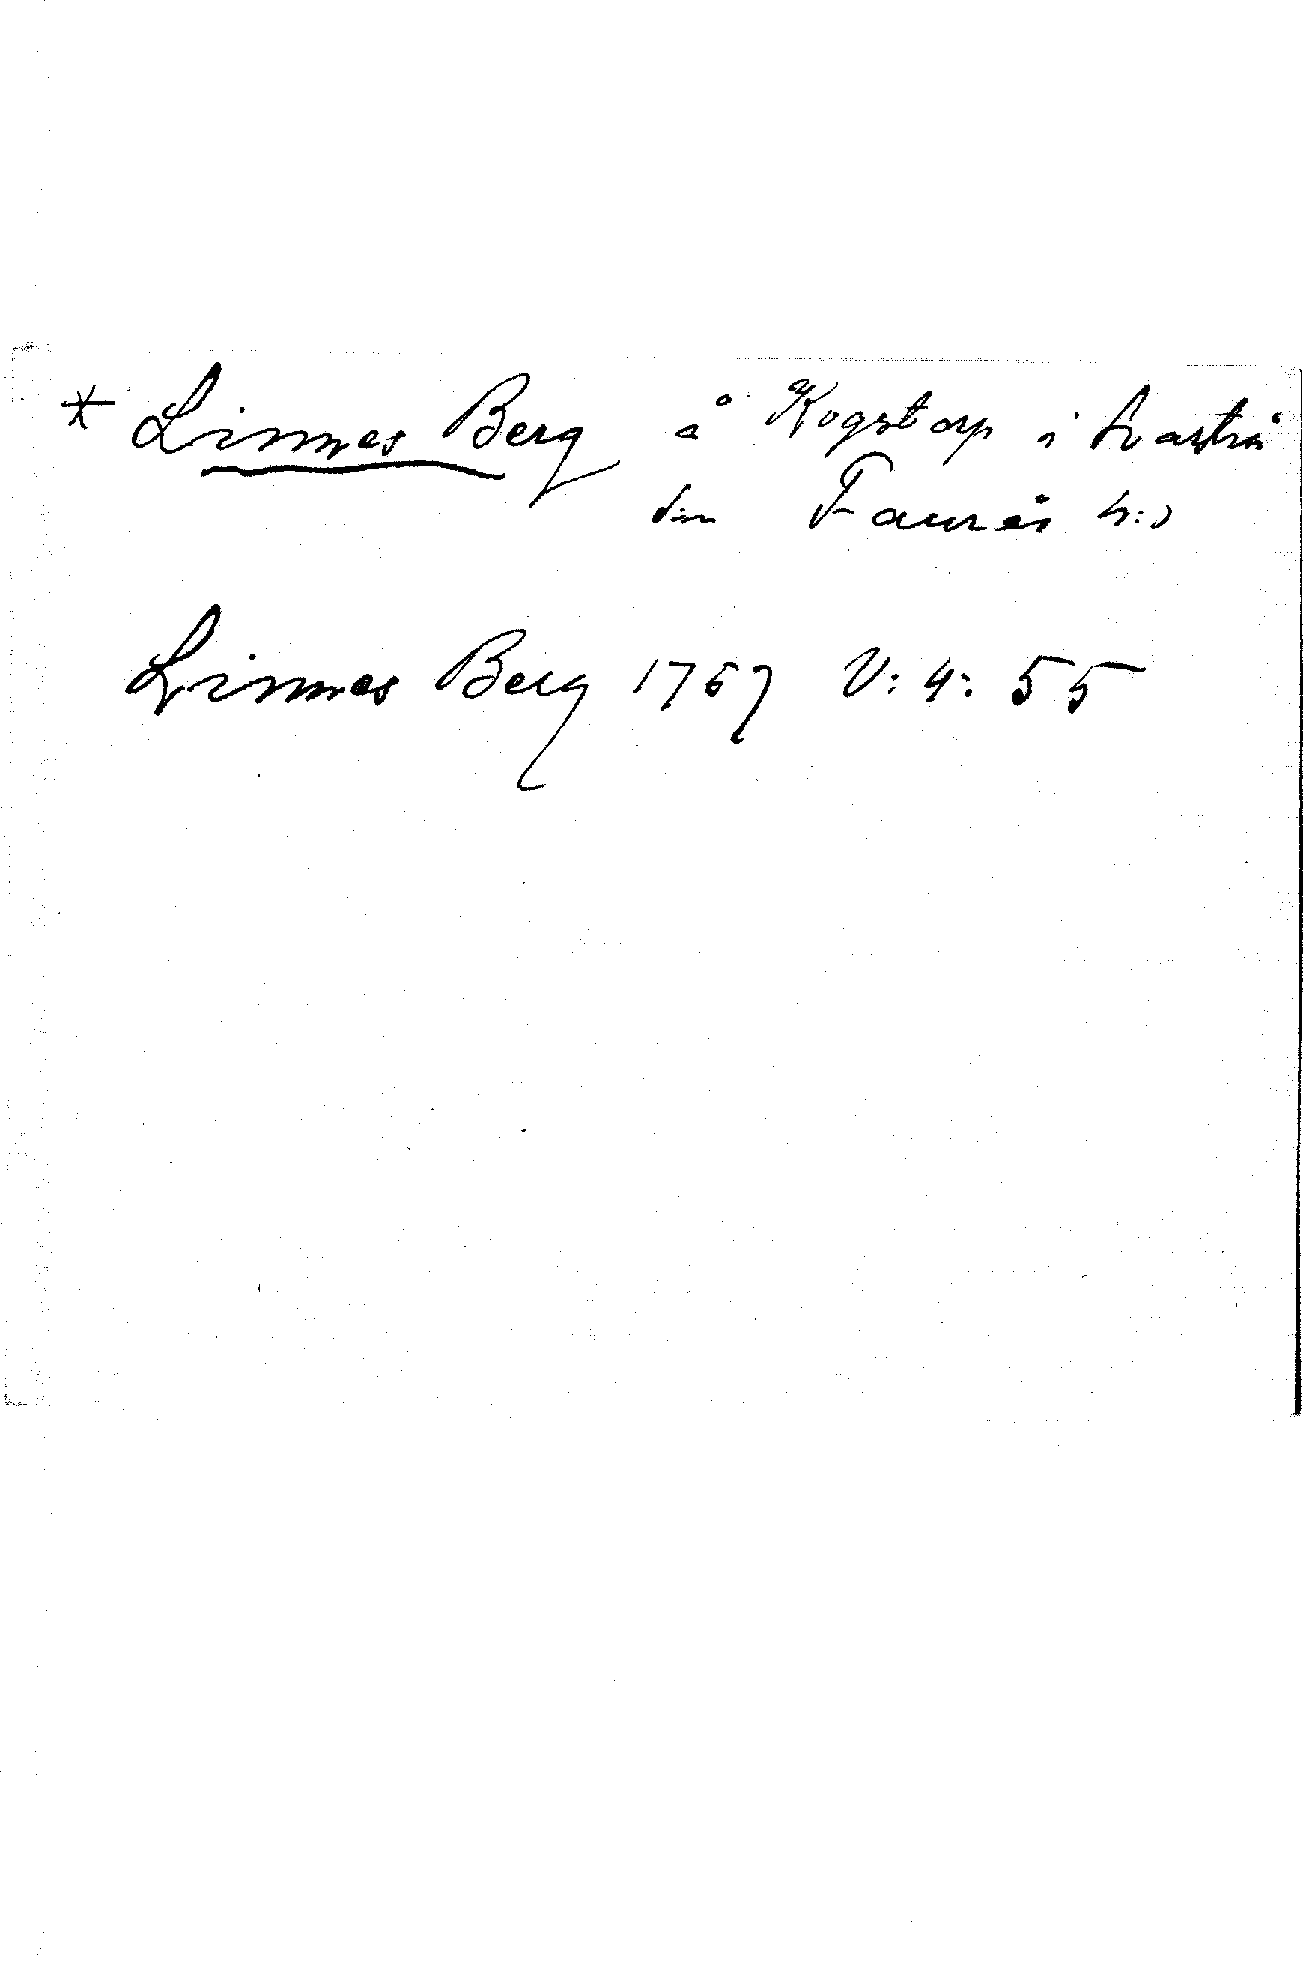 * Linnes Berg å Kogstorp i Svartrå
sn Faurås h:d
Linnes Berg 1767 V: 4: 55